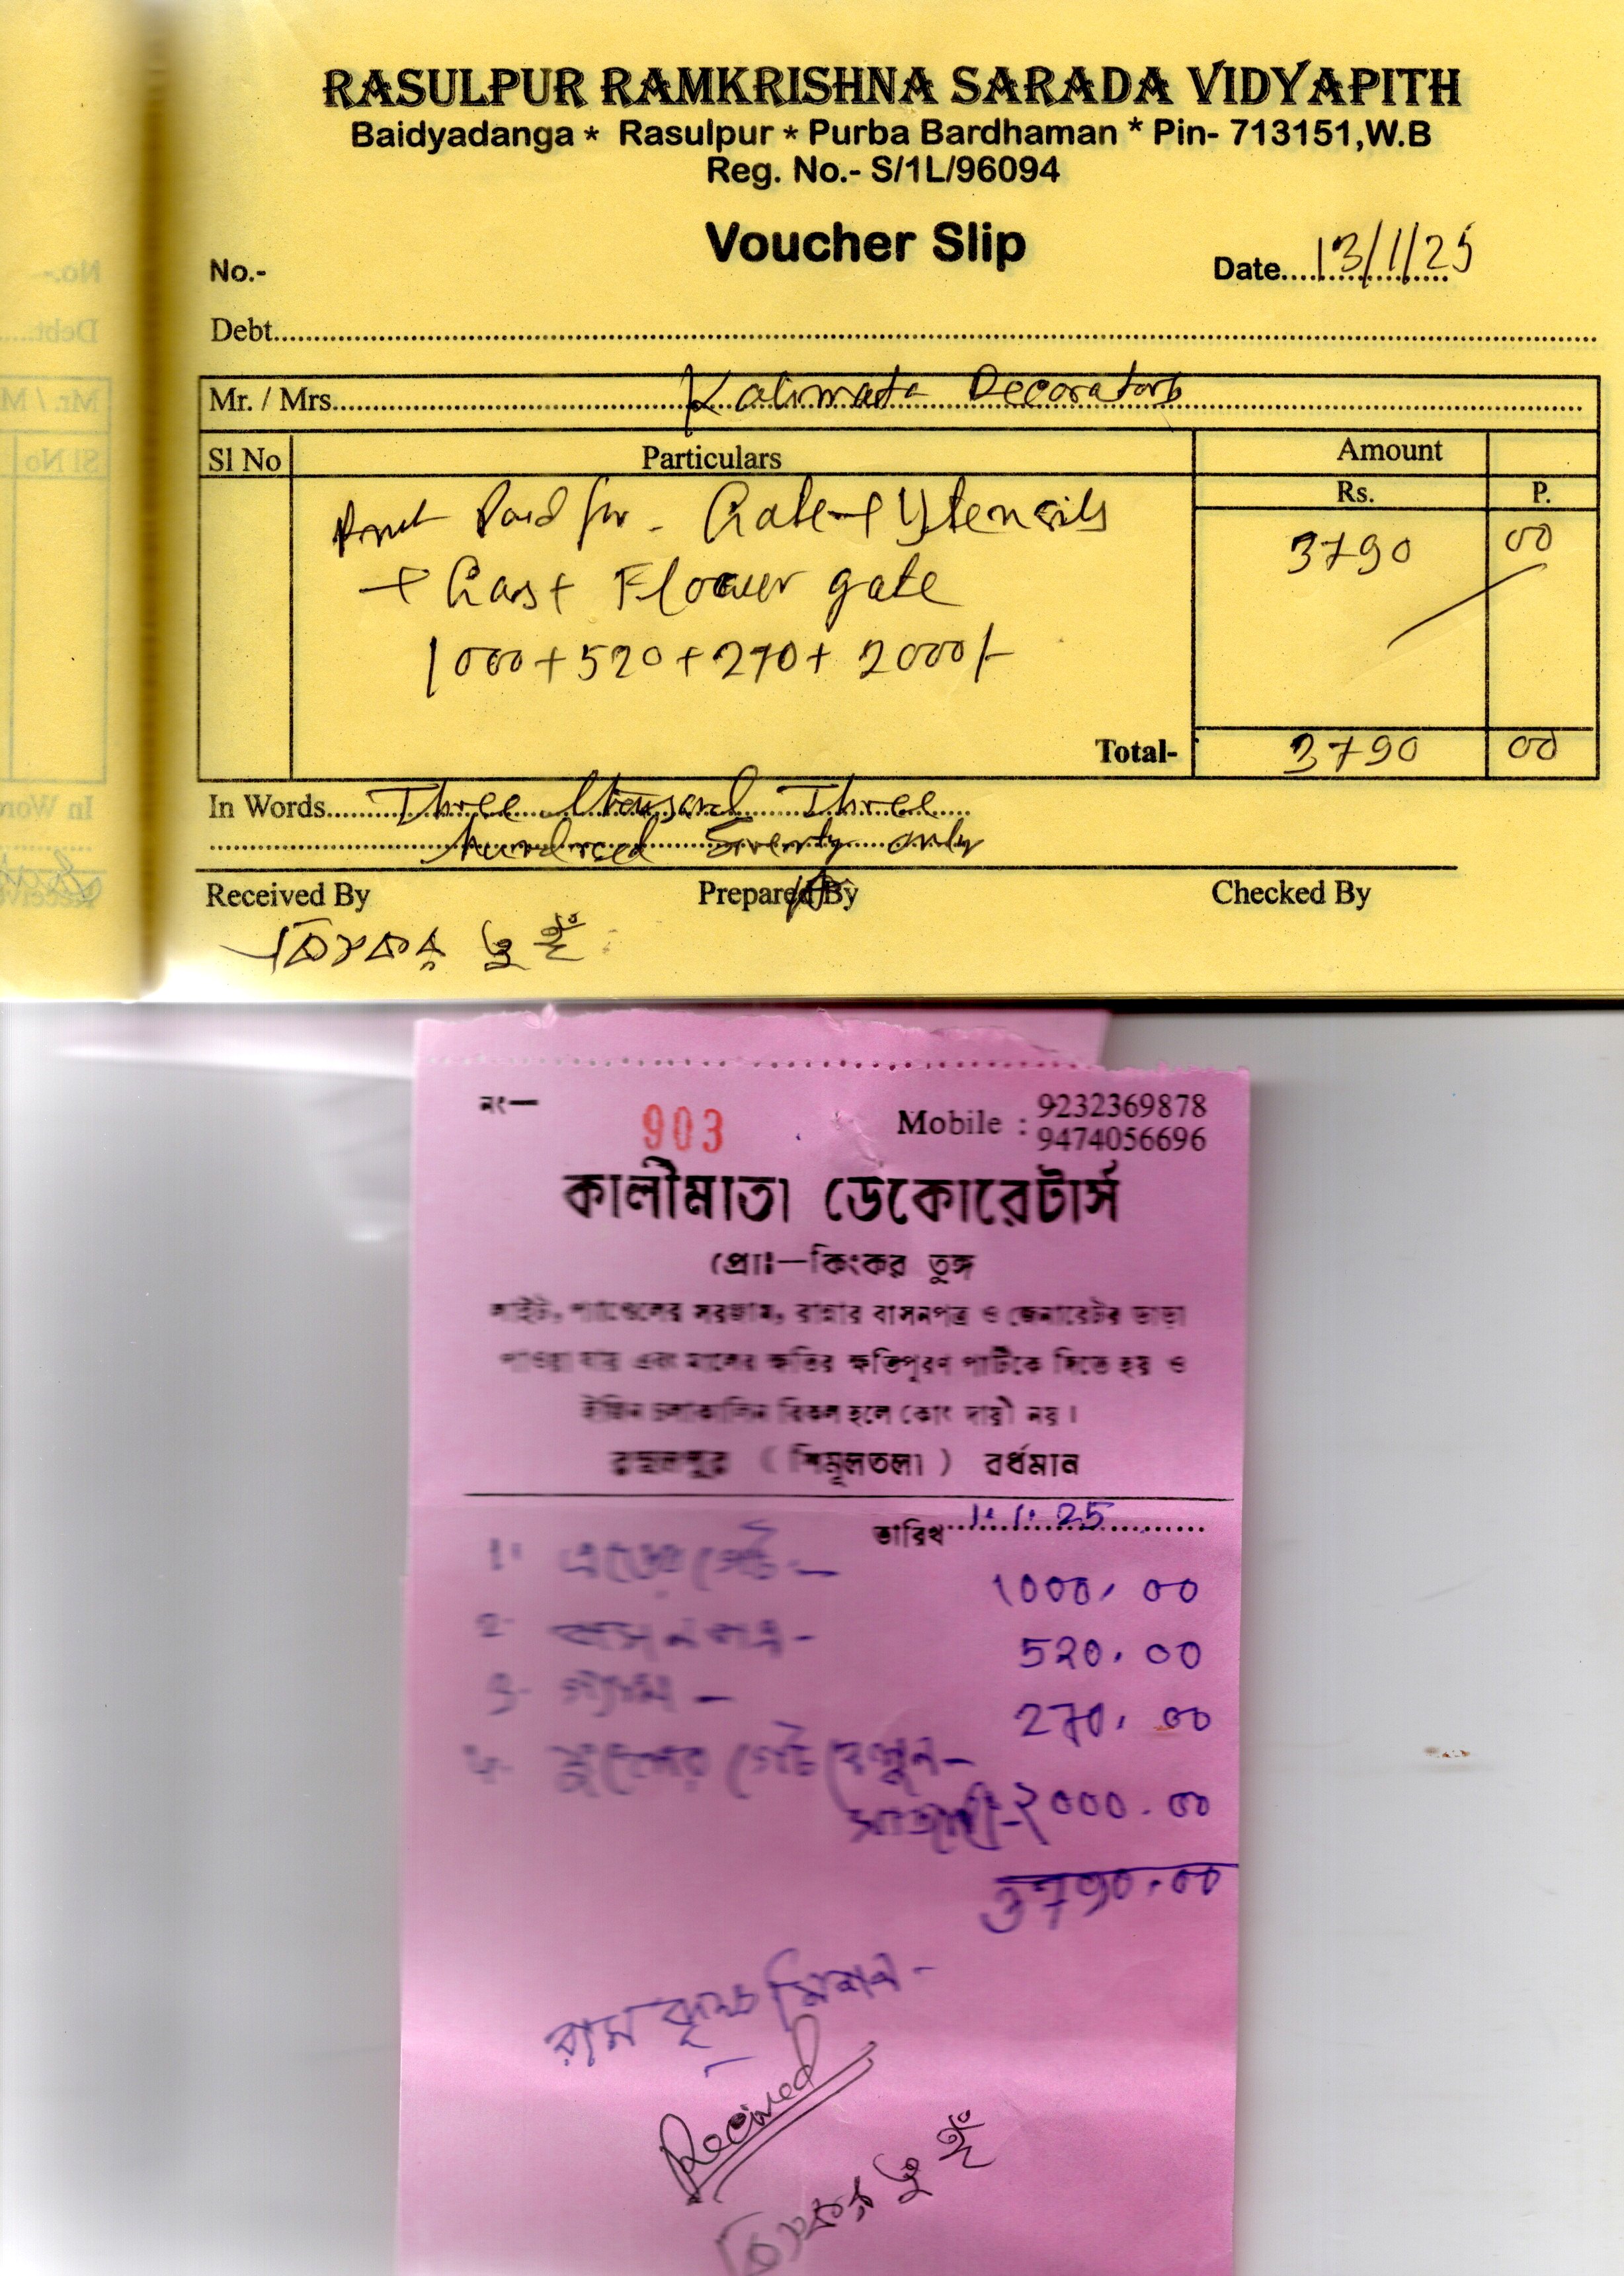 RASULPUR RAMKRISHNA SARADA VIDYAPITH
Baidyadanga * Rasulpur * Purba Bardhaman * Pin- 713151,W.B
Reg. No.- S/1L/96094
Voucher Slip
No.-
Date.....13/1/25
Debt.....
Mr. / Mrs..... Kalimata Decorators
Sl No Particulars Amount
Rs. P.
Paid for - Gate + Utensils 3790 00
+ Gas + Flower gate
1000 + 520 + 270 + 2000/-
Total- 3790 00
In Words..... Three thousand Three
hundred Seventy only
Received By Prepared By Checked By
কিংকর তুঙ্গ
নং—
903
Mobile : 9232369878
9474056696
কালীমাতা ডেকোরেটার্স
প্রোঃ—কিংকর তুঙ্গ
লাইট, প্যাণ্ডেলের সরঞ্জাম, রান্নার বাসনপত্র ও জেনারেটর ভাড়া
পাওয়া যায় এবং মালের ক্ষতির ক্ষতিপূরণ পার্টিকে দিতে হয় ও
ইঞ্জিন চলাকালিন বিকল হলে কোং দায়ী নয়।
রসুলপুর ( শিমূলতলা ) বর্ধমান
তারিখ.....1.1.25
1. গেট - 1000.00
2- বাসনপত্র - 520.00
3- গ্যাস - 270.00
৪- ফুলের গেট বেলুন -
২000.00
3790.00
রাম কৃষ্ণ মিশন -
Received
কিংকর তুঙ্গ